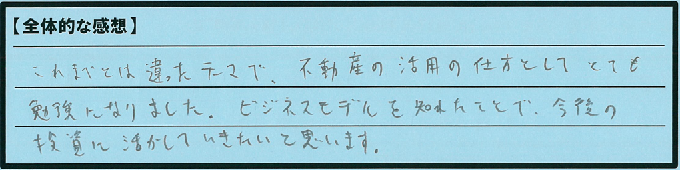 【全体的な感想】
これまでとは違ったテーマで、不動産の活用の仕方としてとても
勉強になりました。ビジネスモデルを知れたことで、今後の
投資に活かしていきたいと思います。